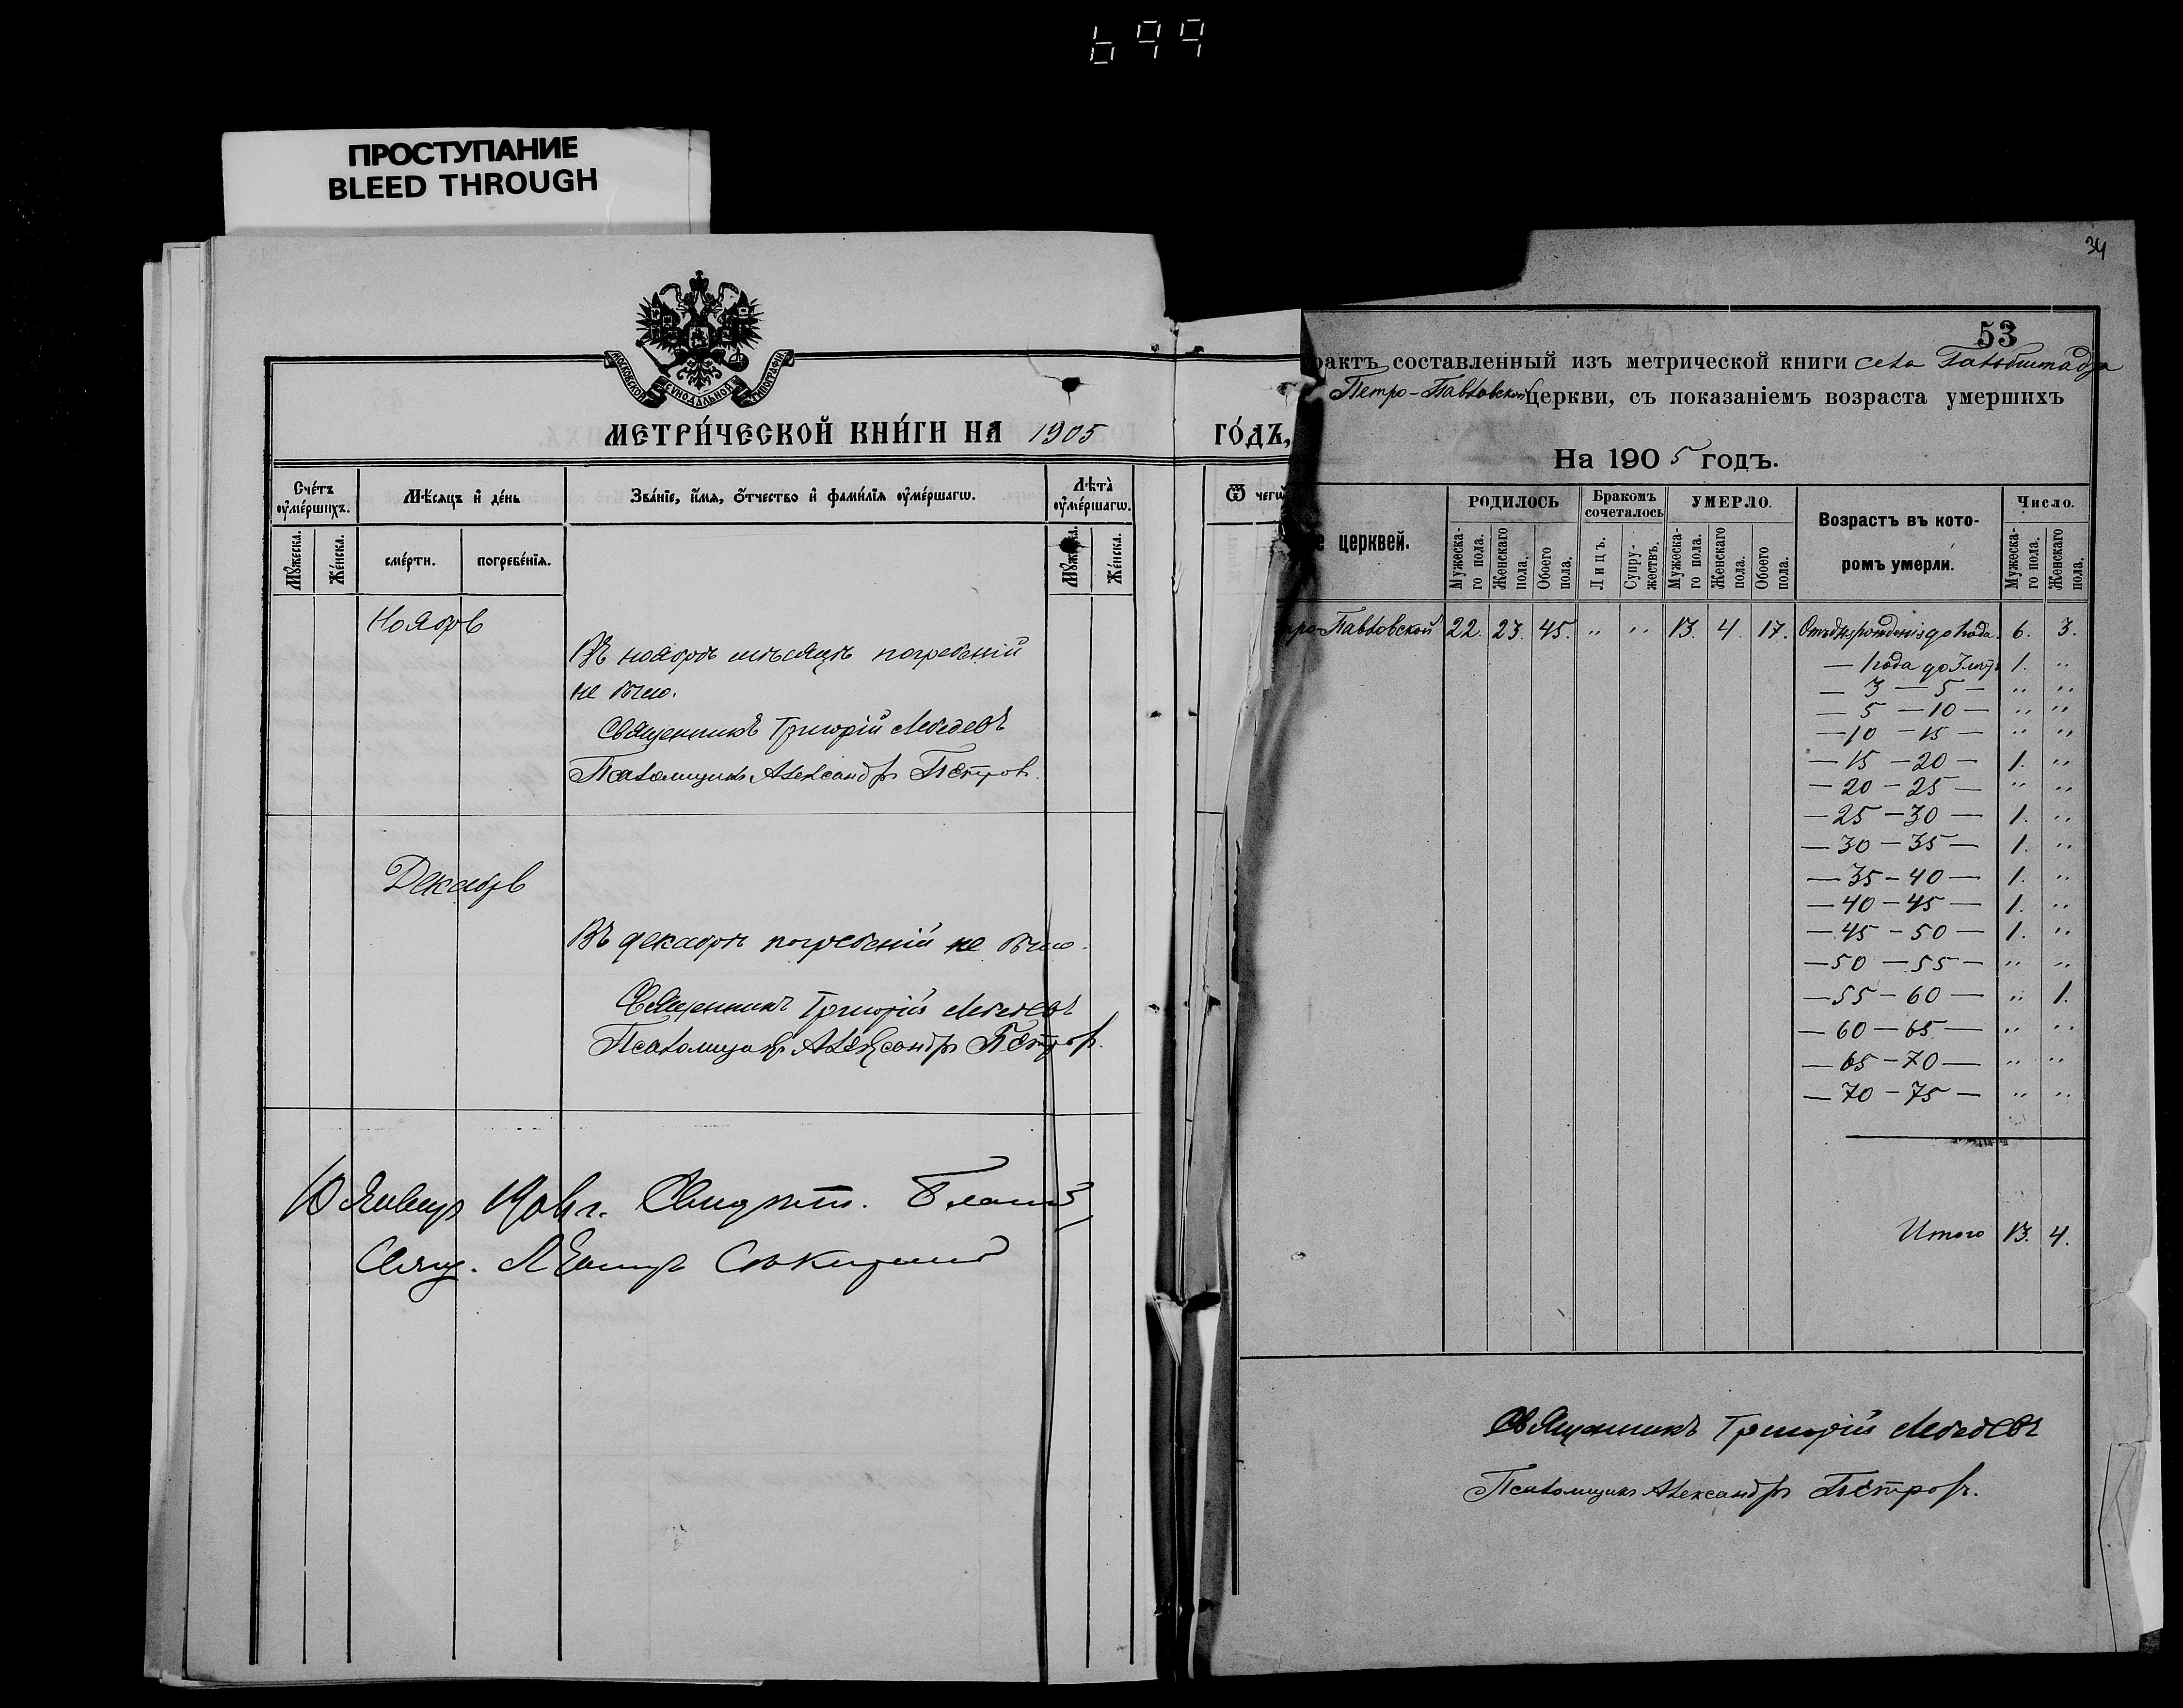 699
ПРОСТУПАНИЕ
BLEED THROUGH
МОСКОВСКОЙ СѴНОДАЛЬНОЙ ТИПОГРАФІИ
МЕТРИ́ЧЕСКОЙ КНИ́ГИ НА 1905 ГО́ДЪ,
Сче́тъ оумершихъ.
Мѣсяцъ и де́нь
Зва́нїе, и́мя, ѻ҆́тчество и фами́лїя оумершагѡ.
Лѣта̀ оумершагѡ.
Ѿ чегѡ̀
Мꙋжеска.
Же́нска.
сме́рти.
погребе́нїя.
Мꙋжеска.
Же́нска.
Ноябрь
Въ ноябрѣ мѣсяцѣ погребеній
не было.
Священникъ Григорій Лебедевъ
Псаломщикъ Александръ Петровъ.
Декабрь
Въ декабрѣ погребеній не было.
Священникъ Григорій Лебедевъ
Псаломщикъ Александръ Петровъ.
10 Января 1906 г. Свидѣт.
Свящ.
34
53
рактъ составленный изъ метрической книги села Гальбштадта
Петро-Павловской церкви, съ показаніемъ возраста умершихъ
На 1905 годъ.
е церквей.
РОДИЛОСЬ
Бракомъ сочеталось
УМЕРЛО.
Возрастъ въ кото-
ромъ умерли.
Число.
Мужеска-го пола.
Женскаго пола.
Обоего пола.
Лицъ.
Супру-жествъ.
Мужеска-го пола.
Женскаго пола.
Обоего пола.
Мужеска-го пола.
Женскаго пола.
ро-Павловской 22. 23. 45. " " 13. 4. 17. Отъ дня рожденія до 1 года. 6. 3.
— 1 года до 3 лѣтъ 1. "
— 3 — 5 — " "
— 5 — 10 — " "
— 10 — 15 — " "
— 15 — 20 — 1. "
— 20 — 25 — " "
— 25 — 30 — 1. "
— 30 — 35 — 1. "
— 35 — 40 — 1. "
— 40 — 45 — 1. "
— 45 — 50 — 1. "
— 50 — 55 — " "
— 55 — 60 — " 1.
— 60 — 65 — " "
— 65 — 70 — " "
— 70 — 75 — " "
Итого 13. 4.
Священникъ Григорій Лебедевъ
Псаломщикъ Александръ Петровъ.